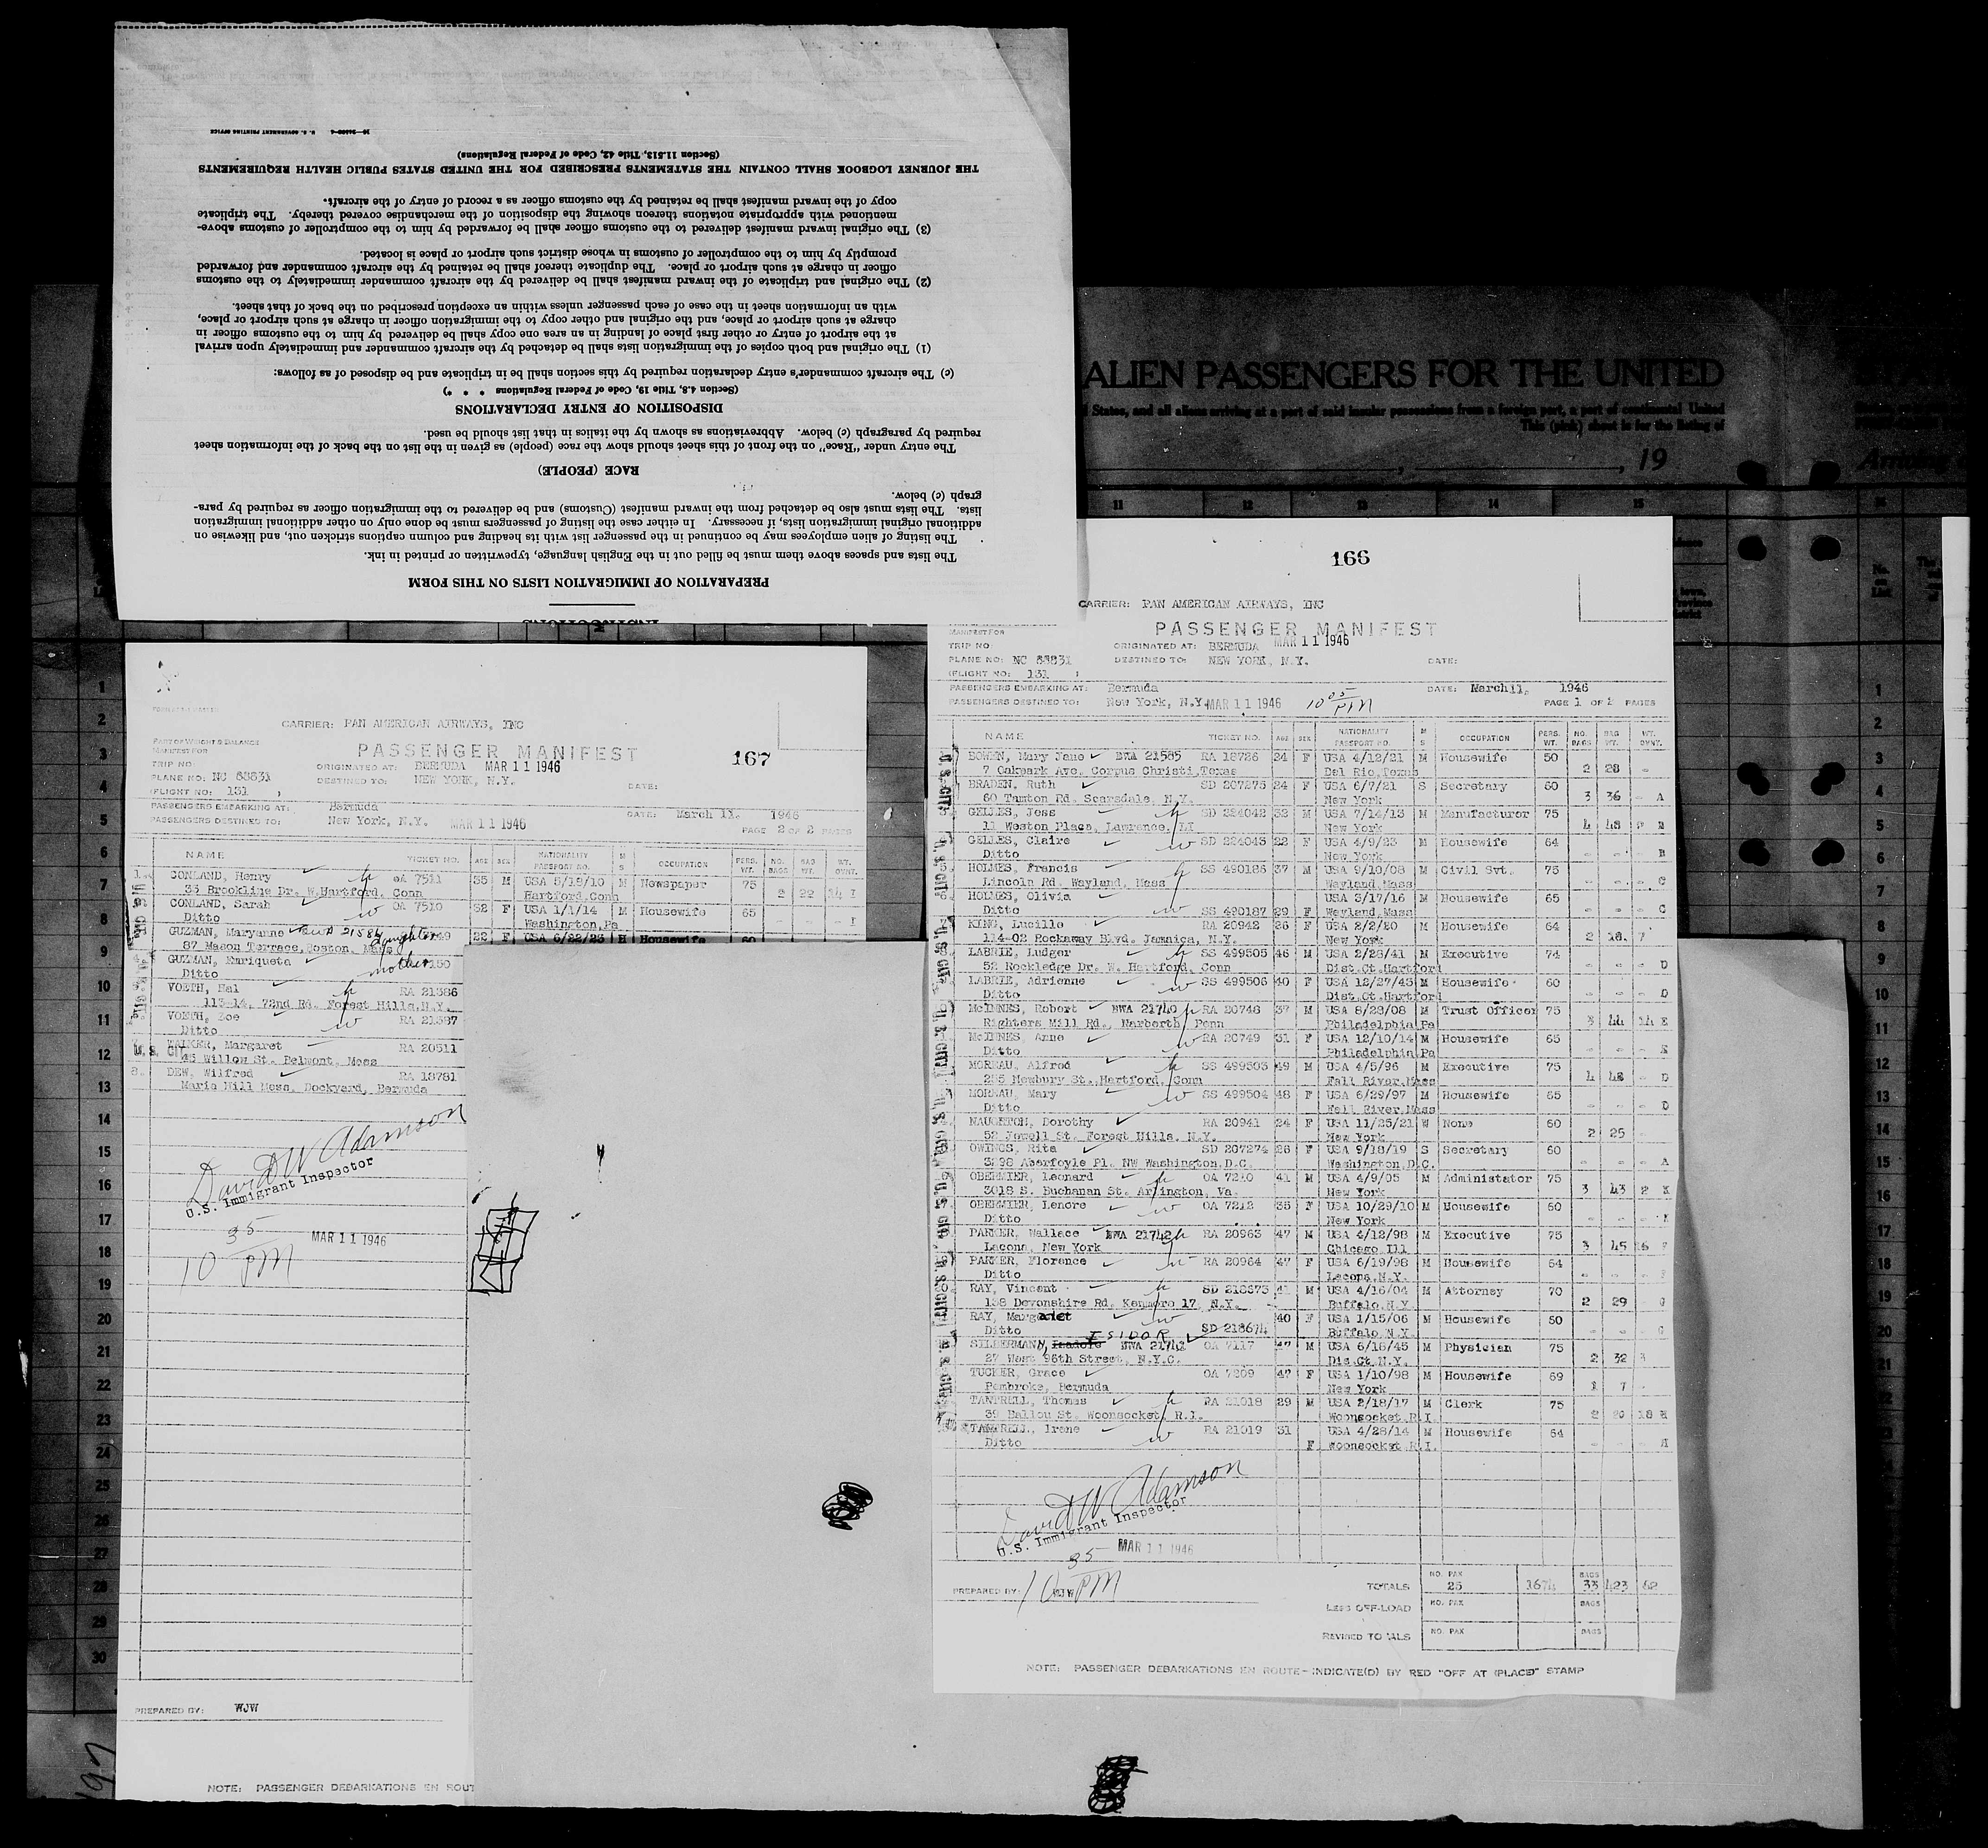 PREPARATION OF IMMIGRATION LISTS ON THIS FORM
The lists and spaces above them must be filled out in the English language, typewritten or printed in ink.
The listing of alien employees may be continued in the passenger list with its heading and column captions stricken out, and likewise on
additional original immigration lists, if necessary. In either case the listing of passengers must be done only on other additional immigration
lists. The lists must also be detached from the inward manifest (Customs) and be delivered to the immigration officer as required by para-
graph (c) below.
RACE (PEOPLE)
The entry under "Race" on the front of this sheet should show the race (people) as given in the list on the back of the information sheet
required by paragraph (c) below. Abbreviations as shown by the italics in that list should be used.
DISPOSITION OF ENTRY DECLARATIONS
(Section 4.8, Title 19, Code of Federal Regulations * * *)
(c) The aircraft commander's entry declaration required by this section shall be in triplicate and be disposed of as follows:
(1) The original and both copies of the immigration lists shall be detached by the aircraft commander and immediately upon arrival
at the airport of entry or other first place of landing in an area one copy shall be delivered by him to the customs officer in
charge at such airport or place, and the original and other copy to the immigration officer in charge at such airport or place,
with an information sheet in the case of each passenger unless within an exception prescribed on the back of that sheet.
(2) The original and triplicate of the inward manifest shall be delivered by the aircraft commander immediately to the customs
officer in charge at such airport or place. The duplicate thereof shall be retained by the aircraft commander and forwarded
promptly by him to the comptroller of customs in whose district such airport or place is located.
(3) The original inward manifest delivered to the customs officer shall be forwarded by him to the comptroller of customs above-
mentioned with appropriate notations thereon showing the disposition of the merchandise covered thereby. The triplicate
copy of the inward manifest shall be retained by the customs officer as a record of entry of the aircraft.
THE JOURNEY LOGBOOK SHALL CONTAIN THE STATEMENTS PRESCRIBED FOR THE UNITED STATES PUBLIC HEALTH REQUIREMENTS
(Section 11.513, Title 42, Code of Federal Regulations)
U. S. GOVERNMENT PRINTING OFFICE
ALIEN PASSENGERS FOR THE UNITED
States, and all aliens arriving at a port of said insular possessions from a foreign port, a port of continental United
This (pink) sheet is for the listing of
, 19
11 12 13 14 15
167
CARRIER: PAN AMERICAN AIRWAYS, INC
PART OF WEIGHT & BALANCE
MANIFEST FOR
PASSENGER MANIFEST
TRIP NO: ORIGINATED AT: BERMUDA MAR 11 1946
PLANE NO: NC 88831 DESTINED TO: NEW YORK, N.Y. DATE:
(FLIGHT NO: 131 )
PASSENGERS EMBARKING AT: Bermuda DATE: March 11, 1946
PASSENGERS DESTINED TO: New York, N.Y. MAR 11 1946 PAGE 2 OF 2 PAGES
NAME TICKET NO. AGE SEX NATIONALITY PASSPORT NO. M S OCCUPATION PERS. WT. NO. BAGS BAG WT. WT. OVNT.
CONLAND, Henry OA 7511 35 M USA 5/19/10 M Newspaper 75
33 Brookline Dr. W.Hartford, Conn Hartford,Conn
CONLAND, Sarah OA 7510 32 F USA 1/1/14 M Housewife 65
Ditto Washington,Pa
GUZMAN, Maryanne daughter 22 F USA 6/22/23 M Housewife 60
87 Mason Terrace,Boston, Mass
GUZMAN, Enriqueta mother
Ditto
VOETH, Hal RA 21386
113-14, 72nd Rd. Forest Hills,N.Y.
VOETH, Zoe RA 21387
Ditto
WALKER, Margaret RA 20511
45 Willow St. Belmont, Mass
DEW, Wilfred RA 18781
Marie Hill Mess, Dockyard, Bermuda
David W Adamson
U.S. Immigrant Inspector
10 35 PM MAR 11 1946
PREPARED BY: WJW
NOTE: PASSENGER DEBARKATIONS EN ROUT
166
CARRIER: PAN AMERICAN AIRWAYS, INC
PASSENGER MANIFEST
MANIFEST FOR
TRIP NO: ORIGINATED AT: BERMUDA MAR 11 1946
PLANE NO: NC 88831 DESTINED TO: NEW YORK, N.Y. DATE:
(FLIGHT NO: 131 )
PASSENGERS EMBARKING AT: Bermuda DATE: March 11, 1946
PASSENGERS DESTINED TO: New York, N.Y. MAR 11 1946 10 05 PM PAGE 1 OF 2 PAGES
NAME TICKET NO. AGE SEX NATIONALITY PASSPORT NO. M S OCCUPATION PERS. WT. NO. BAGS BAG WT. WT. OVNT.
BOWEN, Mary Jane BWA 21585 RA 18726 24 F USA 4/12/21 M Housewife 50
7 Oakpark Ave. Corpus Christi,Texas Del Rio,Texas 2 28
BRADEN, Ruth SD 207275 24 F USA 6/7/21 S Secretary 60
60 Tamton Rd. Scarsdale, N.Y. New York 3 36 A
GELLES, Jess SD 224042 32 M USA 7/14/13 M Manufacturer 75
11 Weston Place, Lawrence, LI New York 4 48 B
GELLES, Claire SD 224043 22 F USA 4/9/23 M Housewife 64
Ditto New York B
HOLMES, Francis SS 490186 37 M USA 9/10/08 M Civil Svt. 75
Lincoln Rd. Wayland, Mass Wayland,Mass C
HOLMES, Olivia USA 3/17/16 M Housewife 65
Ditto SS 490187 29 F Wayland,Mass C
KING, Lucille RA 20942 26 F USA 2/2/20 M Housewife 64
114-02 Rockaway Blvd. Jamaica, N.Y. New York 2 18
LABRIE, Ludger SS 499505 46 M USA 2/28/41 M Executive 74
52 Rockledge Dr. W. Hartford, Conn Dist.Ct.Hartford D
LABRIE, Adrienne SS 499506 40 F USA 12/27/43 M Housewife 60
Ditto Dist.Ct.Hartford D
McINNES, Robert BWA 21740 RA 20748 37 M USA 8/28/08 M Trust Officer 75
Righters Mill Rd., Narberth, Penn Philadelphia,Pa 3 44 14 E
McINNES, Anne RA 20749 31 F USA 12/10/14 M Housewife 65
Ditto Philadelphia,Pa E
MOREAU, Alfred SS 499503 49 M USA 4/5/96 M Executive 75
255 Newbury St. Hartford, Conn Fall River,Mass 4 48 D
MOREAU, Mary SS 499504 48 F USA 6/29/97 M Housewife 65
Ditto Fall River,Mass D
NAUGHTON, Dorothy RA 20941 24 F USA 11/25/21 W None 60
52 Jewell St. Forest Hills, N.Y. New York 2 25
OWINGS, Rita SD 207274 26 F USA 9/18/19 S Secretary 60
3298 Aberfoyle Pl. NW Washington,D.C. Washington,D.C. A
OBERMIER, Leonard OA 7210 41 M USA 4/9/05 M Administator 75
3018 S. Buchanan St. Arlington, Va. New York 3 43 2 K
OBERMIER, Lenore OA 7212 35 F USA 10/29/10 M Housewife 60
Ditto New York K
PARKER, Wallace BWA 21742 RA 20963 47 M USA 4/12/98 M Executive 75
Lacona, New York Chicago Ill 3 45 16 F
PARKER, Florence RA 20964 47 F USA 6/19/98 M Housewife 54
Ditto Lacona,N.Y.
RAY, Vincent SD 218673 41 M USA 4/16/04 M Attorney 70
138 Devonshire Rd. Kenmore 17, N.Y. Buffalo,N.Y. 2 29 G
RAY, Margaret 40 F USA 1/15/06 M Housewife 50
Ditto SD 218674 Buffalo,N.Y. G
ISIDOR
SILBERMANN, Isadore BWA 21741 OA 7117 47 M USA 6/18/45 M Physician 75
27 West 96th Street, N.Y.C. Dis.Ct.N.Y. 2 32
TUCKER, Grace OA 7209 47 F USA 1/10/98 M Housewife 69
Pembroke, Bermuda New York 1 7
TANTRELL, Thomas RA 21018 29 M USA 2/18/17 M Clerk 75
39 Ballou St. Woonsocket, R.I. Woonsocket,R.I. 2 20 18 H
TANTRELL, Irene RA 21019 31 USA 4/28/14 M Housewife 54
Ditto F Woonsocket,R.I. H
David W Adamson
U.S. Immigrant Inspector
10 35 PM MAR 11 1946
PREPARED BY: WJW
TOTALS NO. PAX 25 1674 BAGS 33 423 62
LESS OFF-LOAD NO. PAX BAGS
REVISED TOTALS NO. PAX BAGS
NOTE: PASSENGER DEBARKATIONS EN ROUTE-INDICATE(D) BY RED "OFF AT (PLACE)" STAMP